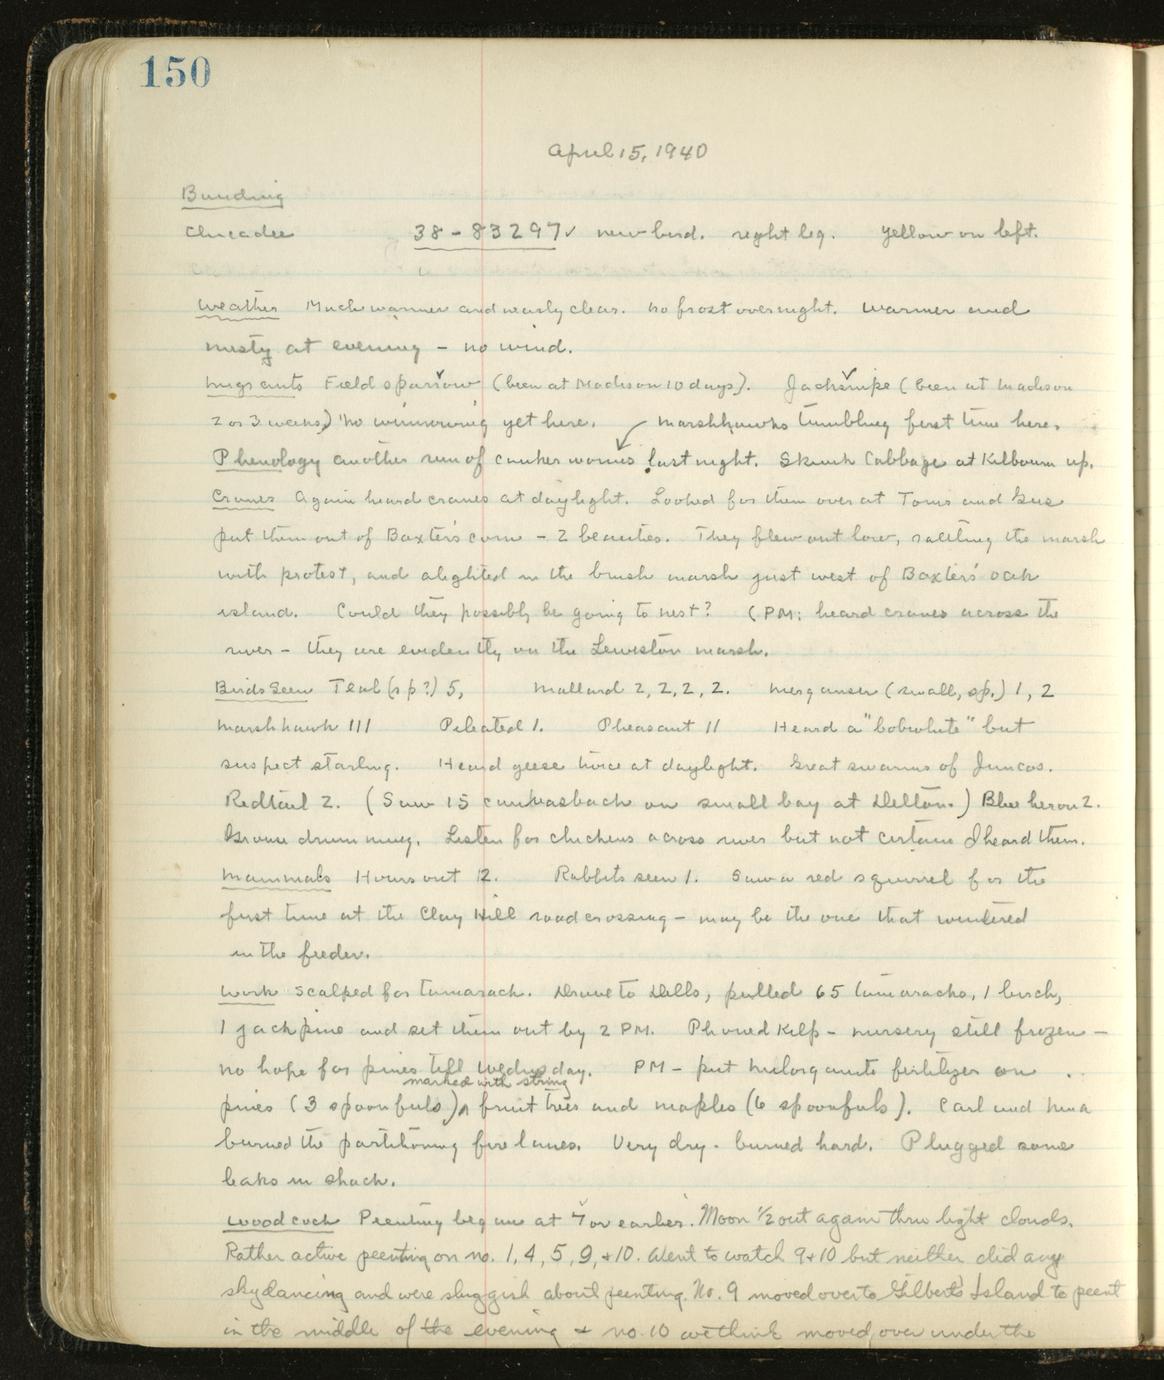 150
April 15, 1940
Banding
Chicadee 38-83297✓ new bird. right leg. yellow on left.
Weather Much warmer and nearly clear. No frost overnight. Warmer and
misty at evening - no wind.
Migrants Field sparrow (been at Madison 10 days). Jacksnipe (been at Madison
2 or 3 weeks) no winnowing yet here. Marshhawks tumbling first time here.
Phenology another run of canker worms last night. Skunk Cabbage at Kilbourn up.
Cranes Again heard cranes at daylight. Looked for them over at Toms and Gus
put them out of Baxter's corn - 2 beauties. They flew out low, rattling the marsh
with protest, and alighted in the brush marsh just west of Baxters' oak
island. Could they possibly be going to nest? (PM: heard cranes across the
river - they are evidently on the Lewiston marsh.
Birds Seen Teal (sp?) 5, Mallard 2, 2, 2, 2. Merganser (small, sp.) 1, 2
Marshhawk 111 Pileated 1. Pheasant 11 Heard a "bobwhite" but
suspect starling. Heard geese twice at daylight. Great swarms of Juncos.
Redtail 2. (Saw 15 canvasback on small bay at Delton.) Blue heron 2.
Grouse drumming. Listen for chickens across river but not certain I heard them.
Mammals Hours out 12. Rabbits seen 1. Saw a red squirrel for the
first time at the Clay Hill road crossing - may be the one that wintered
in the feeder.
Work Scalped for tamarack. Drove to Dells, pulled 65 tamaracks, 1 birch,
1 jackpine and set them out by 2 PM. Phoned Kilp - nursery still frozen -
no hope for pines till Wednesday. PM - put milorganite fertilizer on
marked with string
pines (3 spoonfuls) ^ fruit trees and maples (6 spoonfuls). Carl and Nina
burned the partitioning fire lanes. Very dry - burned hard. Plugged some
leaks in shack.
Woodcock Peenting began at 7 or earlier. Moon ½ out again thru light clouds.
Rather active peenting on no. 1, 4, 5, 9, + 10. Went to watch 9 + 10 but neither did any
skydancing and were sluggish about peenting. No. 9 moved over to Gilbert's Island to peent
in the middle of the evening + no. 10 we think moved over under the